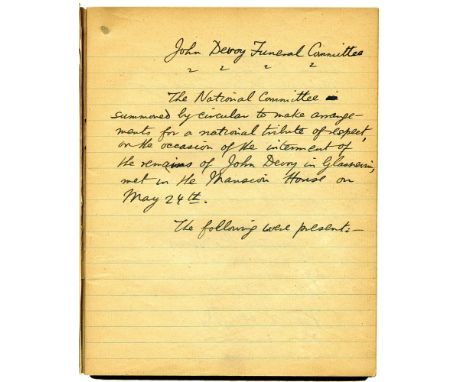 John Devoy Funeral Committee
The National Committee
summoned by circular to make arrange-
ments for a national tribute of respect,
on the occasion of the interment of
the remains of John Devoy in Glasnevin,
met in the Mansion House on
May 24th.
The following were present:-